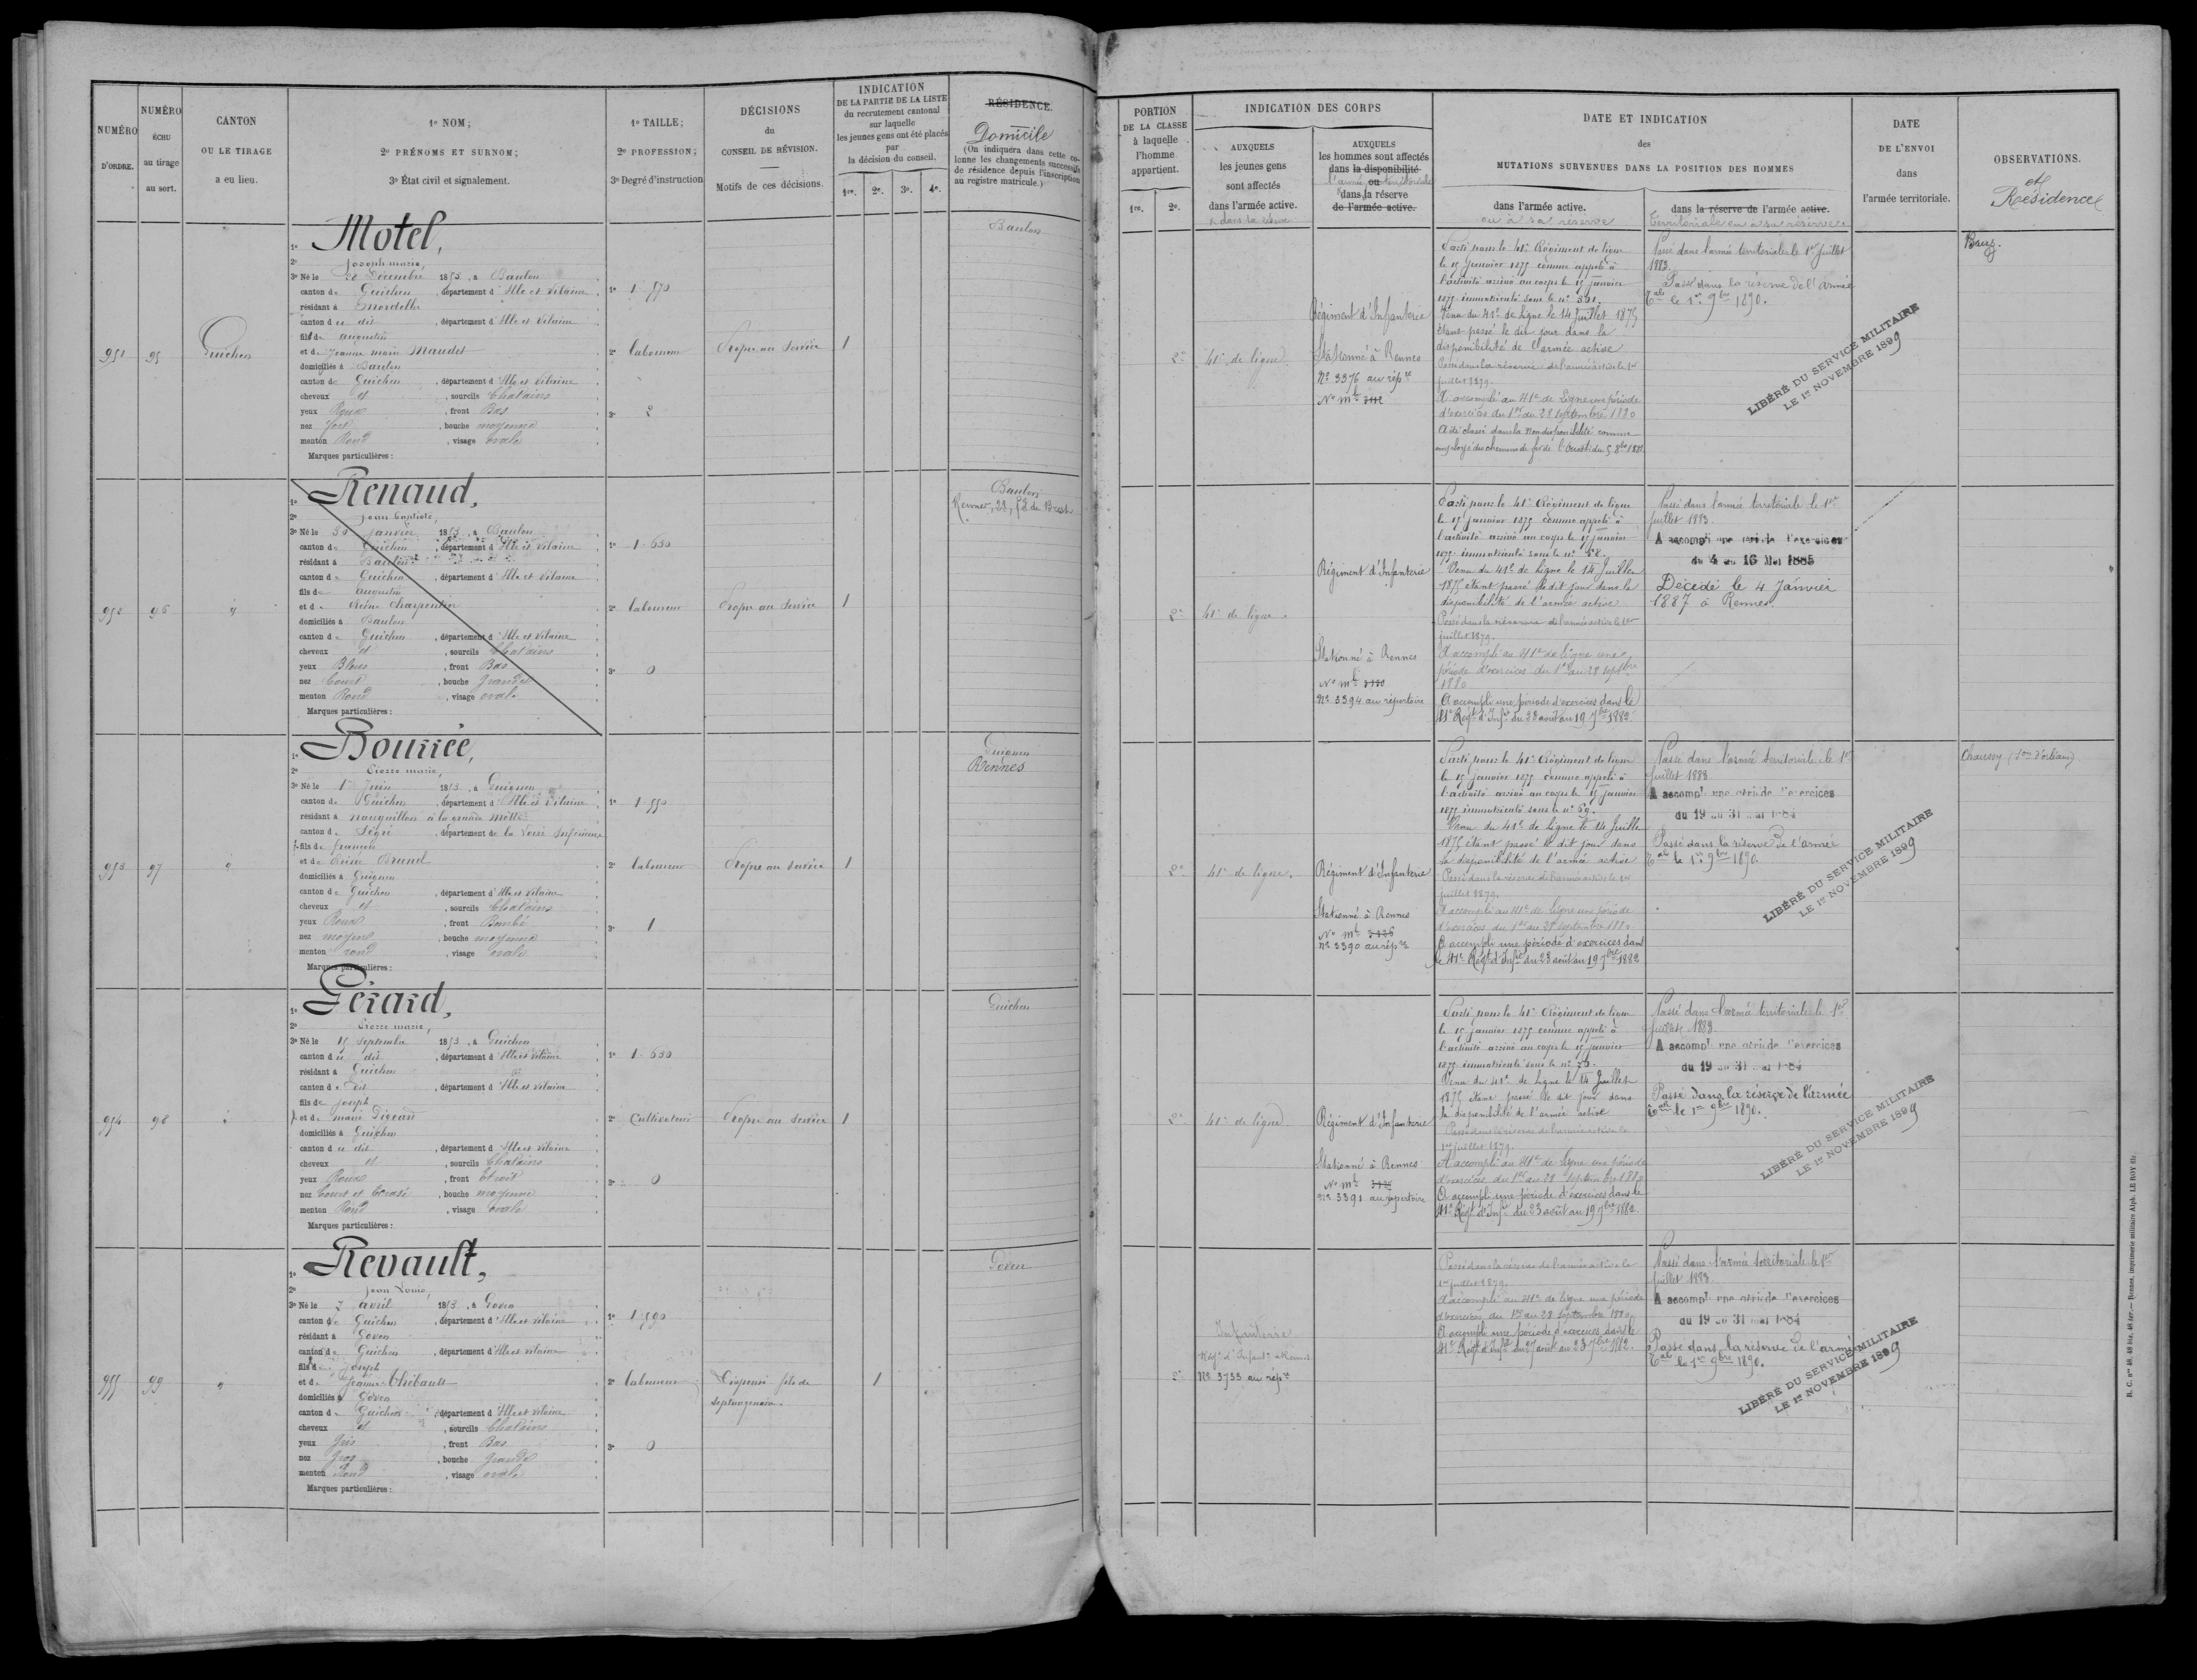 NUMÉRO
D'ORDRE.
NUMÉRO
ÉCHU
au tirage
au sort.
CANTON
OU LE TIRAGE
a eu lieu.
1º NOM;
2º PRÉNOMS ET SURNOM;
3º État civil et signalement.
1º TAILLE;
2º PROFESSION;
3º Degré d'instruction
DÉCISIONS
du
CONSEIL DE RÉVISION.
Motifs de ces décisions.
INDICATION
DE LA PARTIE DE LA LISTE
du recrutement cantonal
sur laquelle
les jeunes gens ont été placés
par
la décision du conseil.
1re. 2e. 3e. 4e.
RÉSIDENCE.
Domicile
(On indiquera dans cette co-
lonne les changements successifs
de résidence depuis l'inscription
au registre matricule.)
951 95 Guichen
1º Motel,
2º Joseph marie,
3º Né le 28 Décembre 1853, à Baulon
canton de Guichen, département d'Ille et Vilaine
résidant à Mordelles
canton du dit, département d'Ille et Vilaine
fils de augustin
et de Jeanne marie Maudet
domiciliés à Baulon
canton de Guichen, département d'Ille et Vilaine
cheveux et, sourcils Chatains
yeux Roux, front Bas
nez fort, bouche moyenne
menton Rond, visage ovale
Marques particulières :
1º 1-570
2º laboureur
3º 2
Propre au service
1
Baulon
952 96 "
1º Renaud,
2º Jean baptiste,
3º Né le 30 janvier 1853, à Baulon
canton de Guichen, département d'Ille et Vilaine
résidant à Baulon
canton de Guichen, département d'Ille et Vilaine
fils de augustin
et de Reine Charpentier
domiciliés à Baulon
canton de Guichen, département d'Ille et Vilaine
cheveux et, sourcils Chatains
yeux Bleus, front Bas
nez Court, bouche Grande
menton Rond, visage ovale
Marques particulières :
1º 1-630
2º laboureur
3º 0
Propre au service
1
Baulon
Rennes, 28, fg de Brest
953 97 "
1º Bourrée,
2º Pierre marie,
3º Né le 1er Juin 1853, à Guignen
canton de Guichen, département d'Ille et Vilaine
résidant à nauguillon à la grande Motte
canton de Légé, département de la Loire Inférieure
fils de françois
et de Reine Brunel
domiciliés à Guignen
canton de Guichen, département d'Ille et Vilaine
cheveux et, sourcils Chatains
yeux Roux, front Bombé
nez moyen, bouche moyenne
menton rond, visage ovale
Marques particulières :
1º 1-550
2º laboureur
3º 1
Propre au service
1
Guignen
Rennes
954 98 "
1º Gérard,
2º Pierre marie,
3º Né le 15 septembre 1853, à Guichen
canton du dit, département d'Ille et Vilaine
résidant à Guichen
canton du dit, département d'Ille et Vilaine
fils de joseph
et de marie Digean
domiciliés à Guichen
canton du dit, département d'Ille et Vilaine
cheveux et, sourcils Chatains
yeux Roux, front Etroit
nez Court et Ecrasé, bouche moyenne
menton Rond, visage ovale
Marques particulières :
1º 1-630
2º Cultivateur
3º 0
Propre au service
1
Guichen
955 99 "
1º Revault,
2º Jean Louis,
3º Né le 7 avril 1853, à Goven
canton de Guichen, département d'Ille et Vilaine
résidant à Goven
canton de Guichen, département d'Ille et Vilaine
fils de joseph
et de Jeanne Thébault
domiciliés à Goven
canton de Guichen, département d'Ille et Vilaine
cheveux et, sourcils Chatains
yeux Gris, front Bas
nez Gros, bouche grande
menton Rond, visage ovale
Marques particulières :
1º 1-590
2º laboureur
3º 0
Dispensé fils de
septuagénaire
1
Goven
PORTION
DE LA CLASSE
à laquelle
l'homme
appartient.
1re. 2e.
INDICATION DES CORPS
AUXQUELS
les jeunes gens
sont affectés
dans l'armée active.
& dans la réserve
AUXQUELS
les hommes sont affectés
dans la disponibilité
l'armée ou territoriale
dans la réserve
de l'armée active.
DATE ET INDICATION
des
MUTATIONS SURVENUES DANS LA POSITION DES HOMMES
dans l'armée active.
ou à sa réserve
dans la réserve de l'armée active.
Territoriale ou à sa réserve
DATE
DE L'ENVOI
dans
l'armée territoriale.
OBSERVATIONS.
et
Résidence
2e
41e de ligne
Régiment d'Infanterie
Stationné à Rennes
Nº 3376 au répre
Nº mle 3112
Parti pour le 41e Régiment de ligne
le 15 Janvier 1875 comme appelé à
l'activité arrivé au corps le 15 janvier
1875 immatriculé sous le nº 301.
Venu du 41e de ligne le 14 Juillet 1875
étant passé le dit jour dans la
disponibilité de l'armée active
Passé dans la réserve de l'armée active le 1er
juillet 1879.
A accompli au 41e de ligne une période
d'exercices du 1er au 28 septembre 1880
A été classé dans la non disponibilité comme
employé des chemins de fer de l'Ouest du 5 8bre 1881
Passé dans l'armée territoriale le 1er Juillet
1883.
Passé dans la réserve de l'armée
Tale le 1er 9bre 1890.
LIBÉRÉ DU SERVICE MILITAIRE
LE 1er NOVEMBRE 1899
Bruz.
2e
41e de ligne.
Régiment d'Infanterie
Stationné à Rennes
Nº mle 3130
Nº 3394 au répertoire
Parti pour le 41e Régiment de ligne
le 15 janvier 1875 comme appelé à
l'activité arrivé au corps le 15 janvier
1875 immatriculé sous le nº 58.
Venu du 41e de ligne le 14 Juillet
1875 étant passé le dit jour dans la
disponibilité de l'armée active
Passé dans la réserve de l'armée active le 1er
juillet 1879.
A accompli au 41e de ligne une
période d'exercices du 1er au 28 septbre
1880
A accompli une période d'exercices dans le
41e Régt d'Infie du 23 août au 19 7bre 1882.
Passé dans l'armée territoriale le 1er
juillet 1883.
A accompli une période d'exercices
du 4 au 16 Mai 1885
Décédé le 4 Janvier
1887 à Rennes.
2e
41e de ligne.
Régiment d'Infanterie
Stationné à Rennes
Nº mle 3126
nº 3390 au répre
Parti pour le 41e Régiment de ligne
le 15 janvier 1875 comme appelé à
l'activité arrivé au corps le 15 janvier
1875 immatriculé sous le nº 69.
Venu du 41e de ligne le 14 Juillet
1875 étant passé le dit jour dans
la disponibilité de l'armée active
Passé dans la réserve de l'armée active le 1er
juillet 1879.
A accompli au 41e de ligne une période
d'exercices du 1er au 28 septembre 1880
A accompli une période d'exercices dans
le 41e Régt d'Infie du 23 août au 19 7bre 1882
Passé dans l'armée territoriale le 1er
juillet 1883
A accompli une période d'exercices
du 19 au 31 mai 1884
Passé dans la réserve de l'armée
Tale le 1er 9bre 1890.
LIBÉRÉ DU SERVICE MILITAIRE
LE 1er NOVEMBRE 1899
Chaussy (son d'orléans)
2e
41e de ligne
Régiment d'Infanterie
Stationné à Rennes
Nº mle
nº 3391 au répertoire
Parti pour le 41e Régiment de ligne
le 15 janvier 1875 comme appelé à
l'activité arrivé au corps le 15 janvier
1875 immatriculé sous le nº 70.
Venu du 41e de ligne le 14 Juillet
1875 étant passé le dit jour dans
la disponibilité de l'armée active
Passé dans la réserve de l'armée active le
1er juillet 1879.
A accompli au 41e de ligne une période
d'exercices du 1er au 28 septembre 1880
A accompli une période d'exercices dans le
41e Régt d'Infie du 23 août au 19 7bre 1882.
Passé dans l'armée territoriale le 1er
juillet 1883
A accompli une période d'exercices
du 19 au 31 mai 1884
Passé dans la réserve de l'armée
Tale le 1er 9bre 1890.
LIBÉRÉ DU SERVICE MILITAIRE
LE 1er NOVEMBRE 1899
2e
Infanterie
Régt d'Infantie à Rennes
Nº 3733 au répre
Passé dans la réserve de l'armée active le
1er juillet 1879.
A accompli au 41e de ligne une période
d'exercices du 1er au 28 septembre 1880
A accompli une période d'exercices dans le
41e Régt d'Infie du 27 août au 23 7bre 1882.
Passé dans l'armée territoriale le 1er
juillet 1883
A accompli une période d'exercices
du 19 au 31 mai 1884
Passé dans la réserve de l'armée
Tale le 1er 9bre 1890.
LIBÉRÉ DU SERVICE MILITAIRE
LE 1er NOVEMBRE 1899
R. C. nos 48, 48 bis, 48 ter.— Rennes, imprimerie militaire Alph. LE ROY fils.